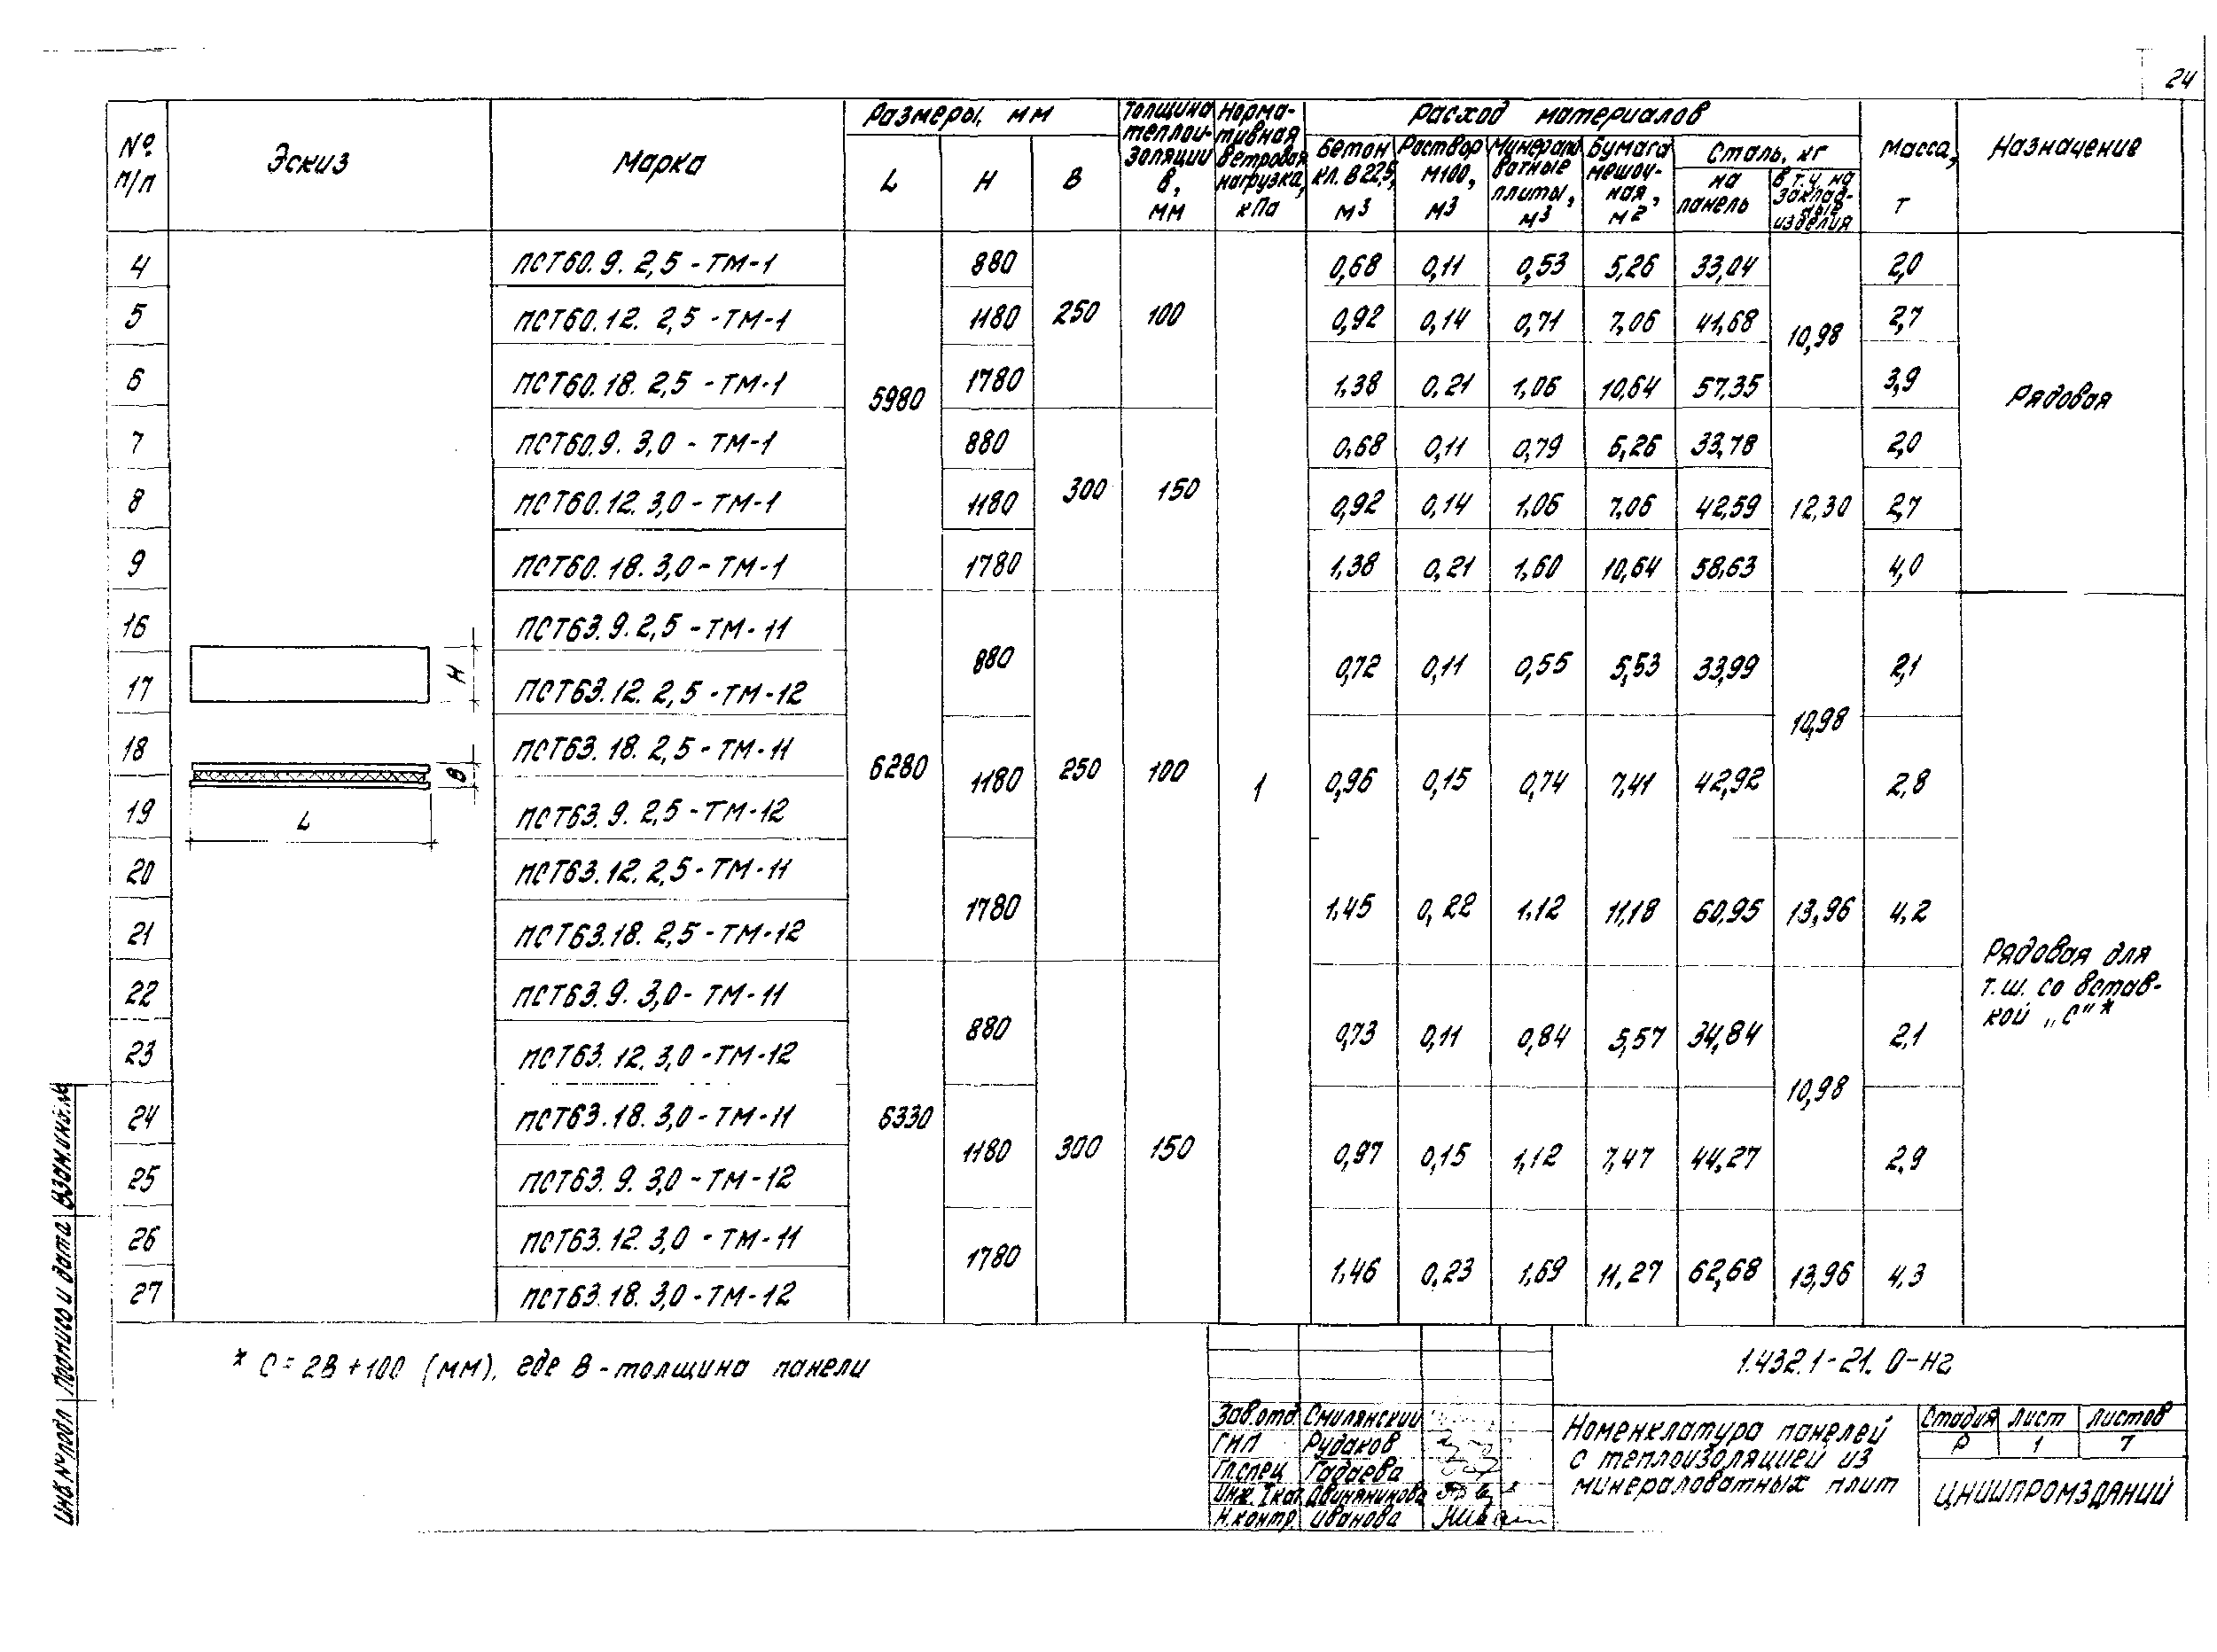 24
№ п/п
Эскиз
Марка
Размеры, мм
L
H
B
Толщина теплои- золяции в, мм
Норма- тивная ветровая нагрузка, кПа
Расход материалов
Бетон кл. В 22,5, м3
Раствор М100, м3
Минерало ватные плиты, м3
Бумага мешоч- ная, м2
Сталь, кг
на панель
в т.ч на заклад- ные изделия
Масса, т
Назначение
4 ПСТ60. 9. 2,5 - ТМ-1 880 0,68 0,11 0,53 5,26 33,04 2,0
5 ПСТ60. 12. 2,5 - ТМ-1 1180 250 100 0,92 0,14 0,71 7,06 41,68 10,98 2,7
6 ПСТ60. 18. 2,5 - ТМ-1 5980 1780 1,38 0,21 1,06 10,64 57,35 3,9 Рядовая
7 ПСТ60. 9. 3,0 - ТМ-1 880 0,68 0,11 0,79 5,26 33,78 2,0
8 ПСТ60. 12. 3,0 - ТМ-1 1180 300 150 0,92 0,14 1,06 7,06 42,59 12,30 2,7
9 ПСТ60. 18. 3,0 - ТМ-1 1780 1,38 0,21 1,60 10,64 58,63 4,0
16 ПСТ63. 9. 2,5 - ТМ-11
H 880 0,72 0,11 0,55 5,53 33,99 2,1
17 ПСТ63. 12. 2,5 - ТМ-12
10,98
18 ПСТ63. 18. 2,5 - ТМ-11
B 6280 1180 250 100 1 0,96 0,15 0,74 7,41 42,92 2,8
19 ПСТ63. 9. 2,5 - ТМ-12
L
20 ПСТ63. 12. 2,5 - ТМ-11
1780 1,45 0,22 1,12 11,18 60,95 13,96 4,2
21 ПСТ63. 18. 2,5 - ТМ-12
Рядовая для
т.ш. со встав-
кой „С"*
22 ПСТ63. 9. 3,0 - ТМ-11
880 0,73 0,11 0,84 5,57 34,84 2,1
23 ПСТ63. 12. 3,0 - ТМ-12
10,98
24 ПСТ63. 18. 3,0 - ТМ-11 6330
1180 300 150 0,97 0,15 1,12 7,47 44,27 2,9
25 ПСТ63. 9. 3,0 - ТМ-12
26 ПСТ63. 12. 3,0 - ТМ-11
1780 1,46 0,23 1,69 11,27 62,68 13,96 4,3
27 ПСТ63. 18. 3,0 - ТМ-12
* С = 2В + 100 (мм), где В - толщина панели
1.432.1-21. 0-НГ
Зав.отд Смилянский
ГИП Рудаков
Гл.спец Гадаева
Инж. I кат. Двинянинова
Н.контр. Иванова
Номенклатура панелей
с теплоизоляцией из
минераловатных плит
Стадия Лист Листов
Р 1 7
ЦНИИПРОМЗДАНИЙ
Инв.№ подл Подпись и дата Взам.инв.№